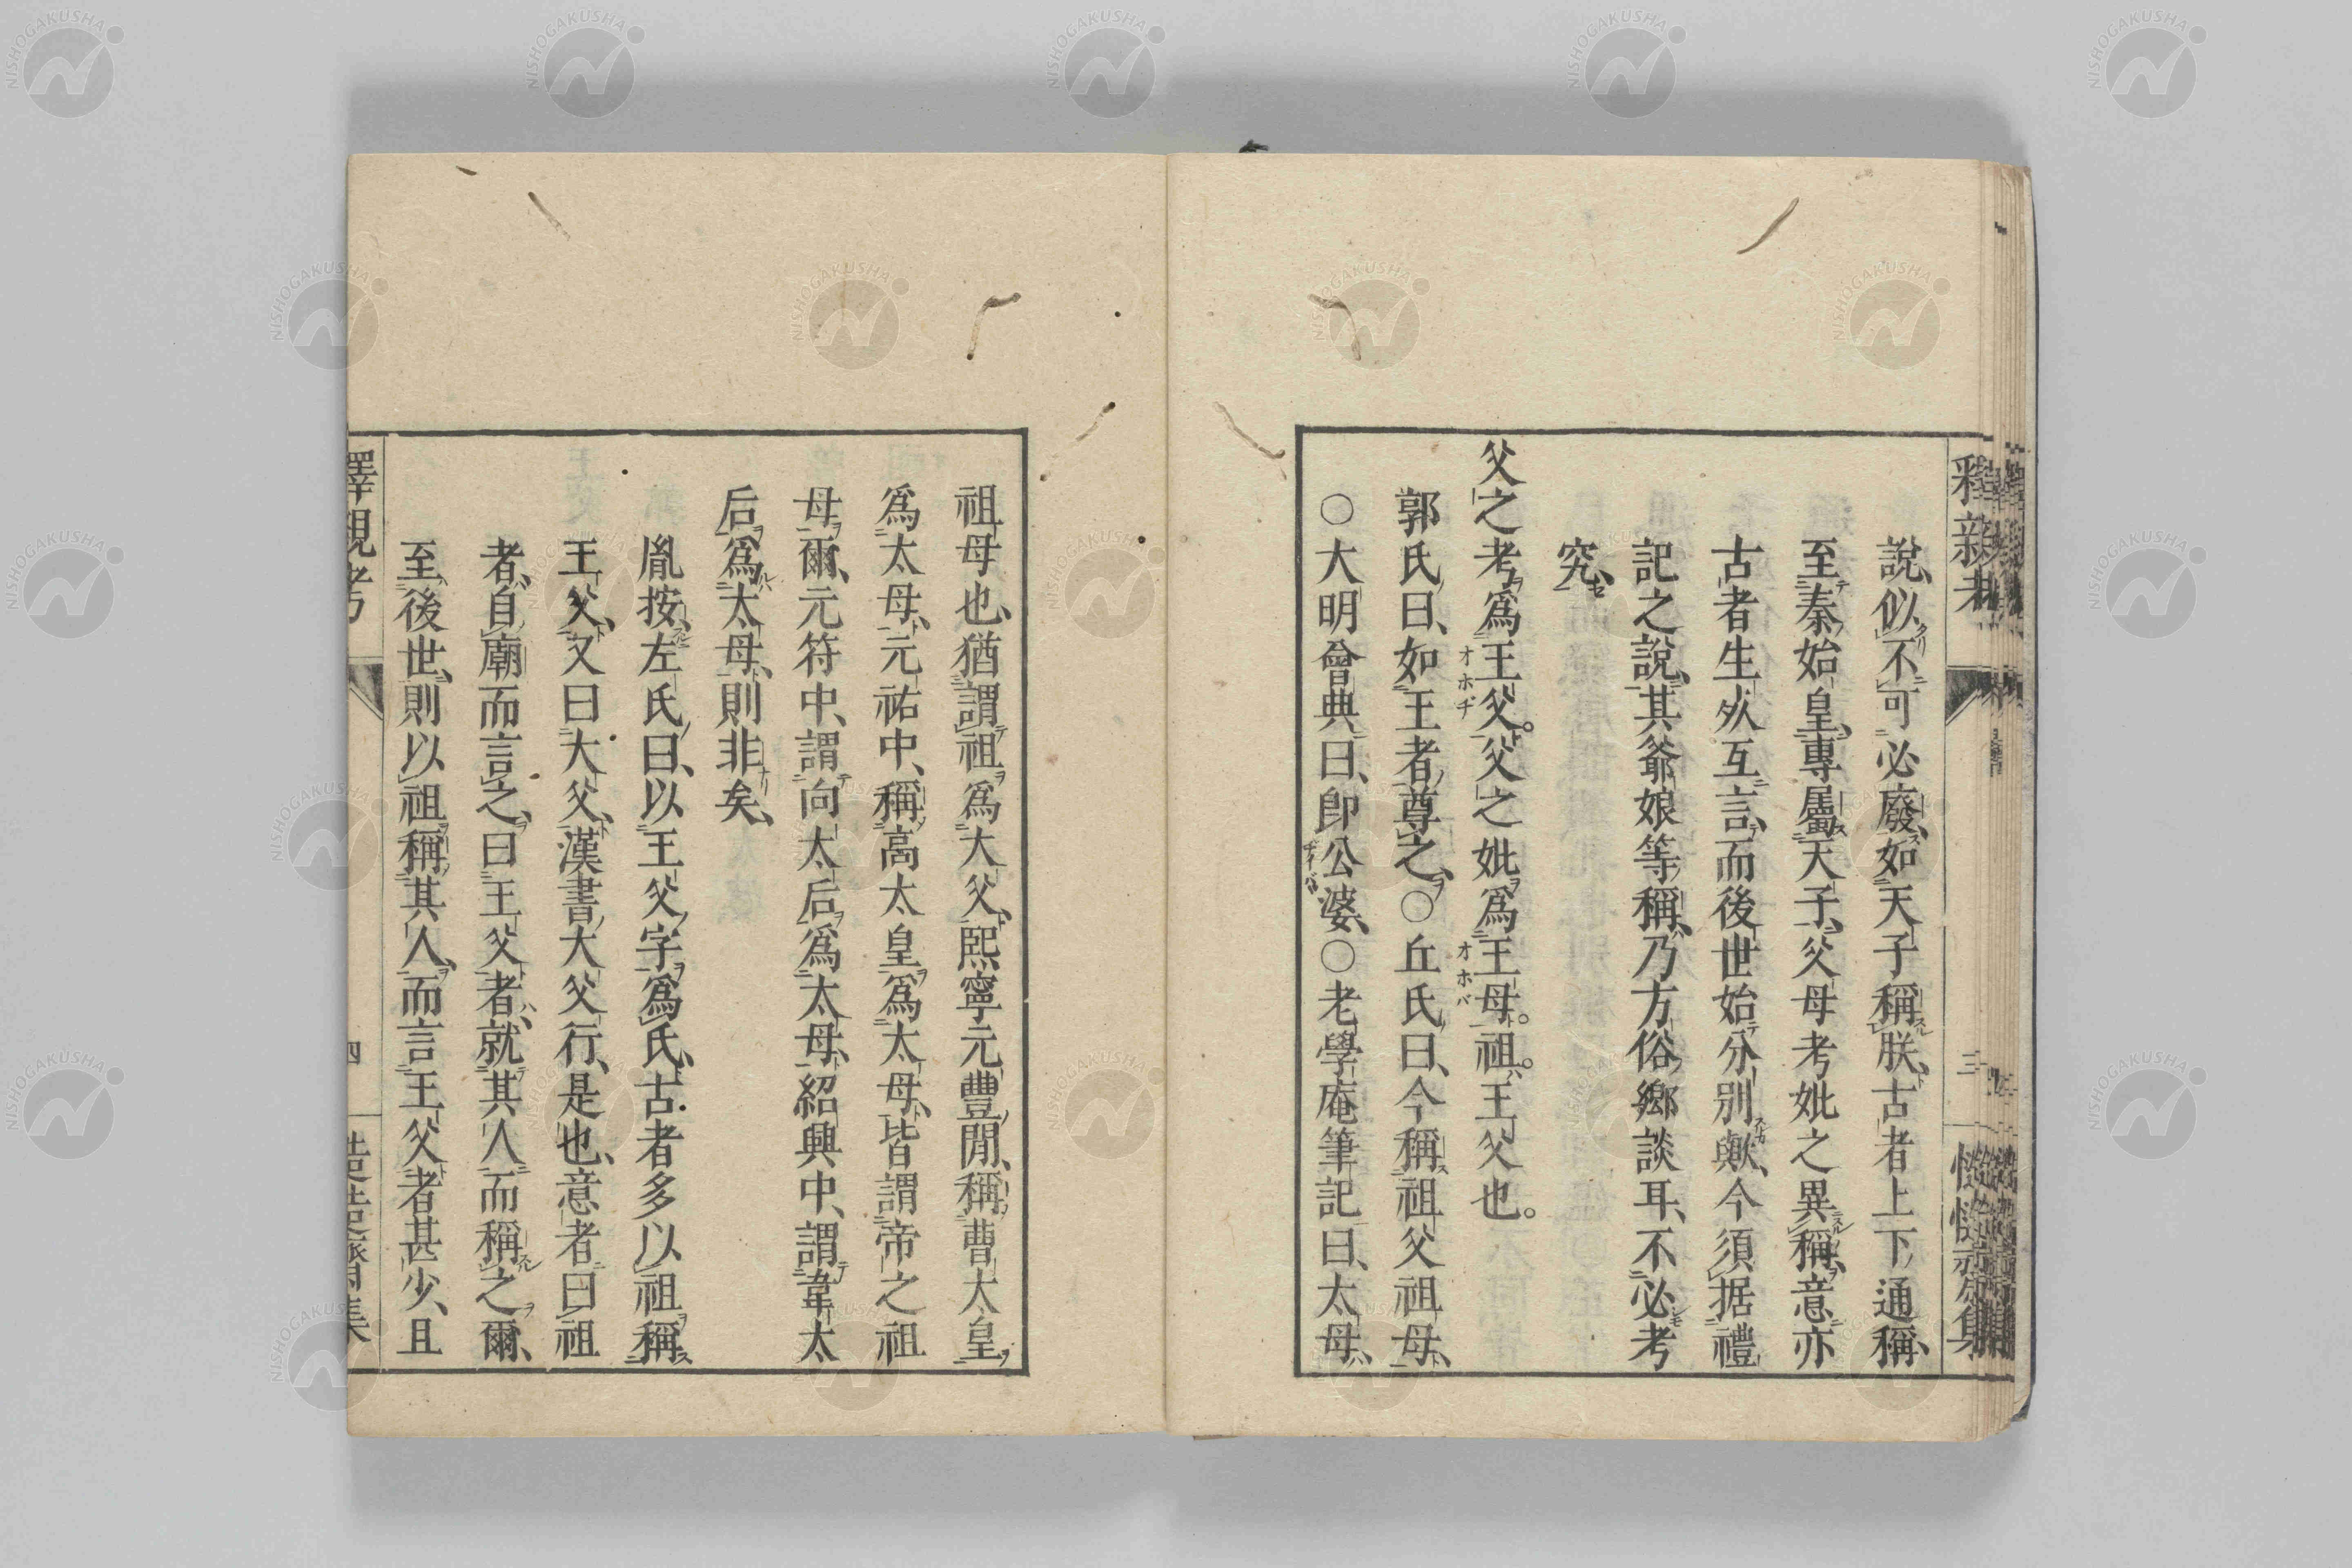 說、似不可必廢、如天子稱朕、古者上下通稱、
至秦始皇、專屬天子、父母考妣之異稱、意亦
古者生死互言、而後世始分別歟、今須据禮
記之說、其爺娘等稱、乃方俗鄉談耳、不必考
究、
父之考爲王父。父之妣爲王母。祖。王父也。
郭氏曰、如王者尊之、○丘氏曰、今稱祖父祖母、
○大明會典曰、即公婆、○老學庵筆記曰、太母、
祖母也、猶謂祖爲大父、熙寧元豐閒、稱曹太皇
爲太母、元祐中、稱高太皇爲太母、皆謂帝之祖
母爾、元符中、謂向太后爲太母、紹興中、謂韋太
后爲太母、則非矣、
胤按、左氏曰、以王父字爲氏、古者多以祖稱
王父、又曰大父、漢書大父行、是也、意者曰祖
者、自廟而言之、曰王父者、就其人而稱之爾、
至後世、則以祖稱其人、而言王父者甚少、且
釋親考
四